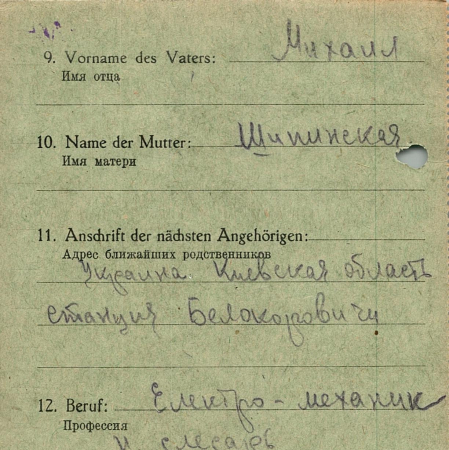 9. Vorname des Vaters: Михаил
Имя отца
10. Name der Mutter: Шипинская
Имя матери
11. Anschrift der nächsten Angehörigen:
Адрес ближайших родственников
Украина Киевская область
станция Белокоровичи
12. Beruf: Електро-механик
Профессия
и слесарь